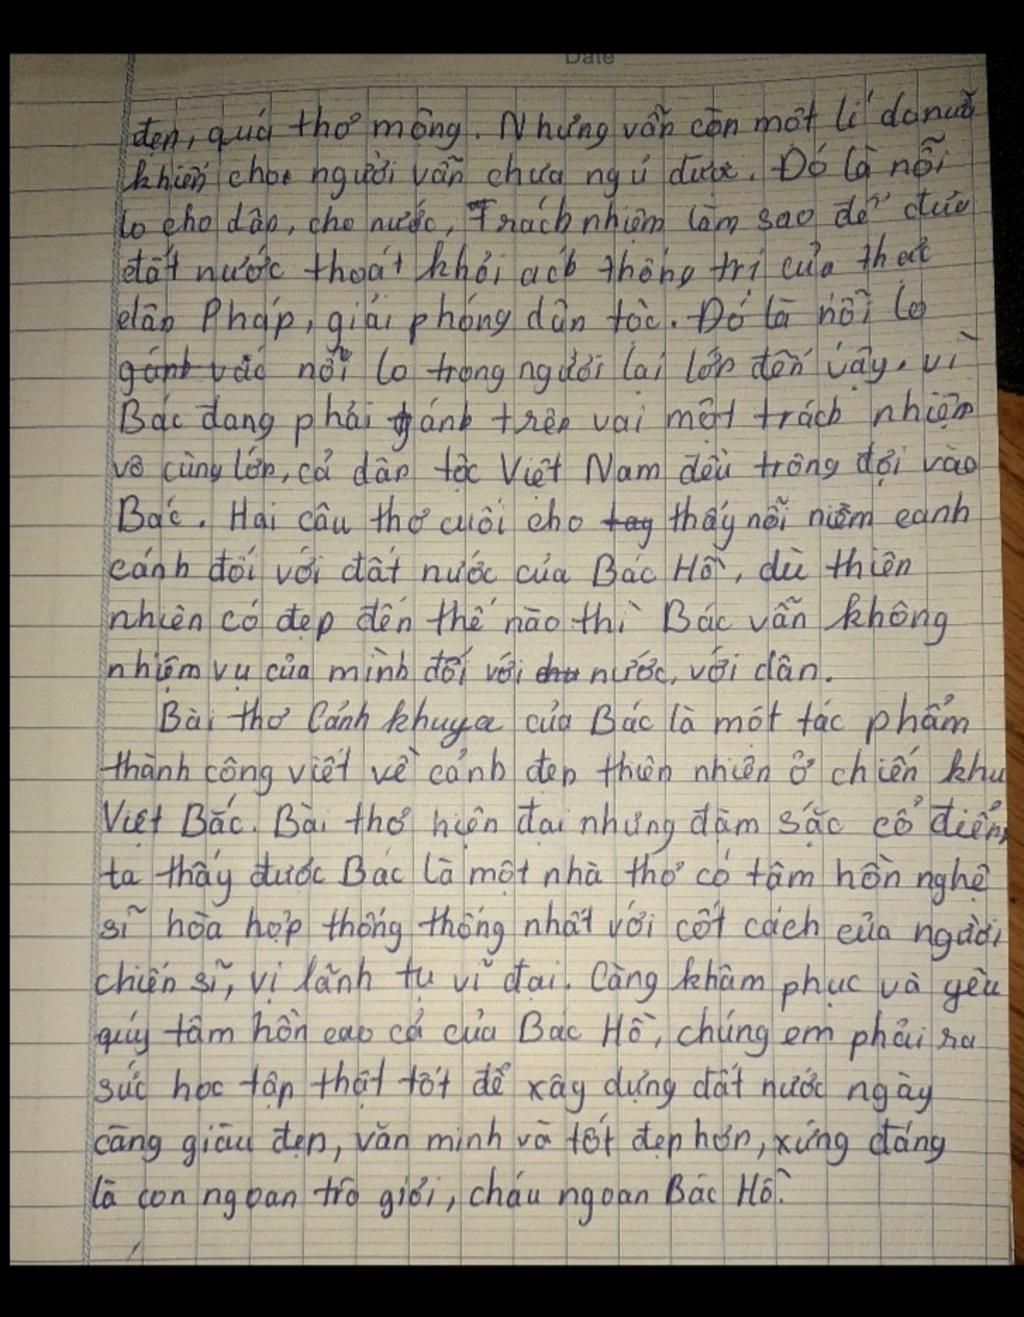 Date
đẹp, quá thơ mộng. Nhưng vẫn còn một lí do nữa
khiến cho người vẫn chưa ngủ được. Đó là nỗi
lo cho dân, cho nước, Trách nhiệm làm sao để đưa
đất nước thoát khỏi ách thống trị của thực
dân Pháp, giải phóng dân tộc. Đó là nỗi lo
gánh vác nỗi lo trong người lại lớn đến vậy, vì
Bác đang phải gánh trên vai một trách nhiệm
vô cùng lớn, cả dân tộc Việt Nam đều trông đợi vào
Bác. Hai câu thơ cuối cho thấy nỗi niềm canh
cánh đối với đất nước của Bác Hồ, dù thiên
nhiên có đẹp đến thế nào thì Bác vẫn không
nhiệm vụ của mình đối với nước, với dân.
Bài thơ Cảnh khuya của Bác là một tác phẩm
thành công viết về cảnh đẹp thiên nhiên ở chiến khu
Việt Bắc. Bài thơ hiện đại nhưng đậm sắc cổ điển,
ta thấy được Bác là một nhà thơ có tâm hồn nghệ
sĩ hòa hợp thống thống nhất với cốt cách của người
chiến sĩ, vị lãnh tụ vĩ đại. Càng khâm phục và yêu
quý tâm hồn cao cả của Bác Hồ, chúng em phải ra
sức học tập thật tốt để xây dựng đất nước ngày
càng giàu đẹp, văn minh và tốt đẹp hơn, xứng đáng
là con ngoan trò giỏi, cháu ngoan Bác Hồ.